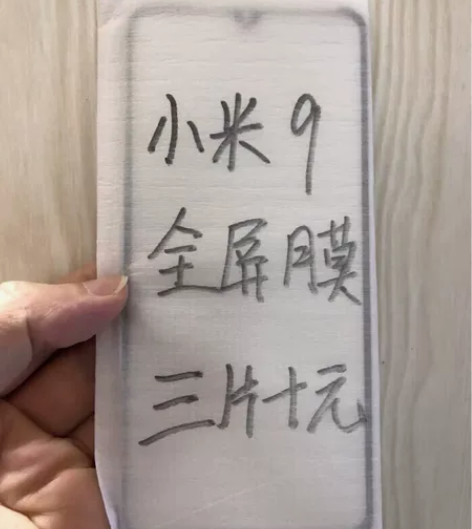 小米9
全屏膜
三片十元